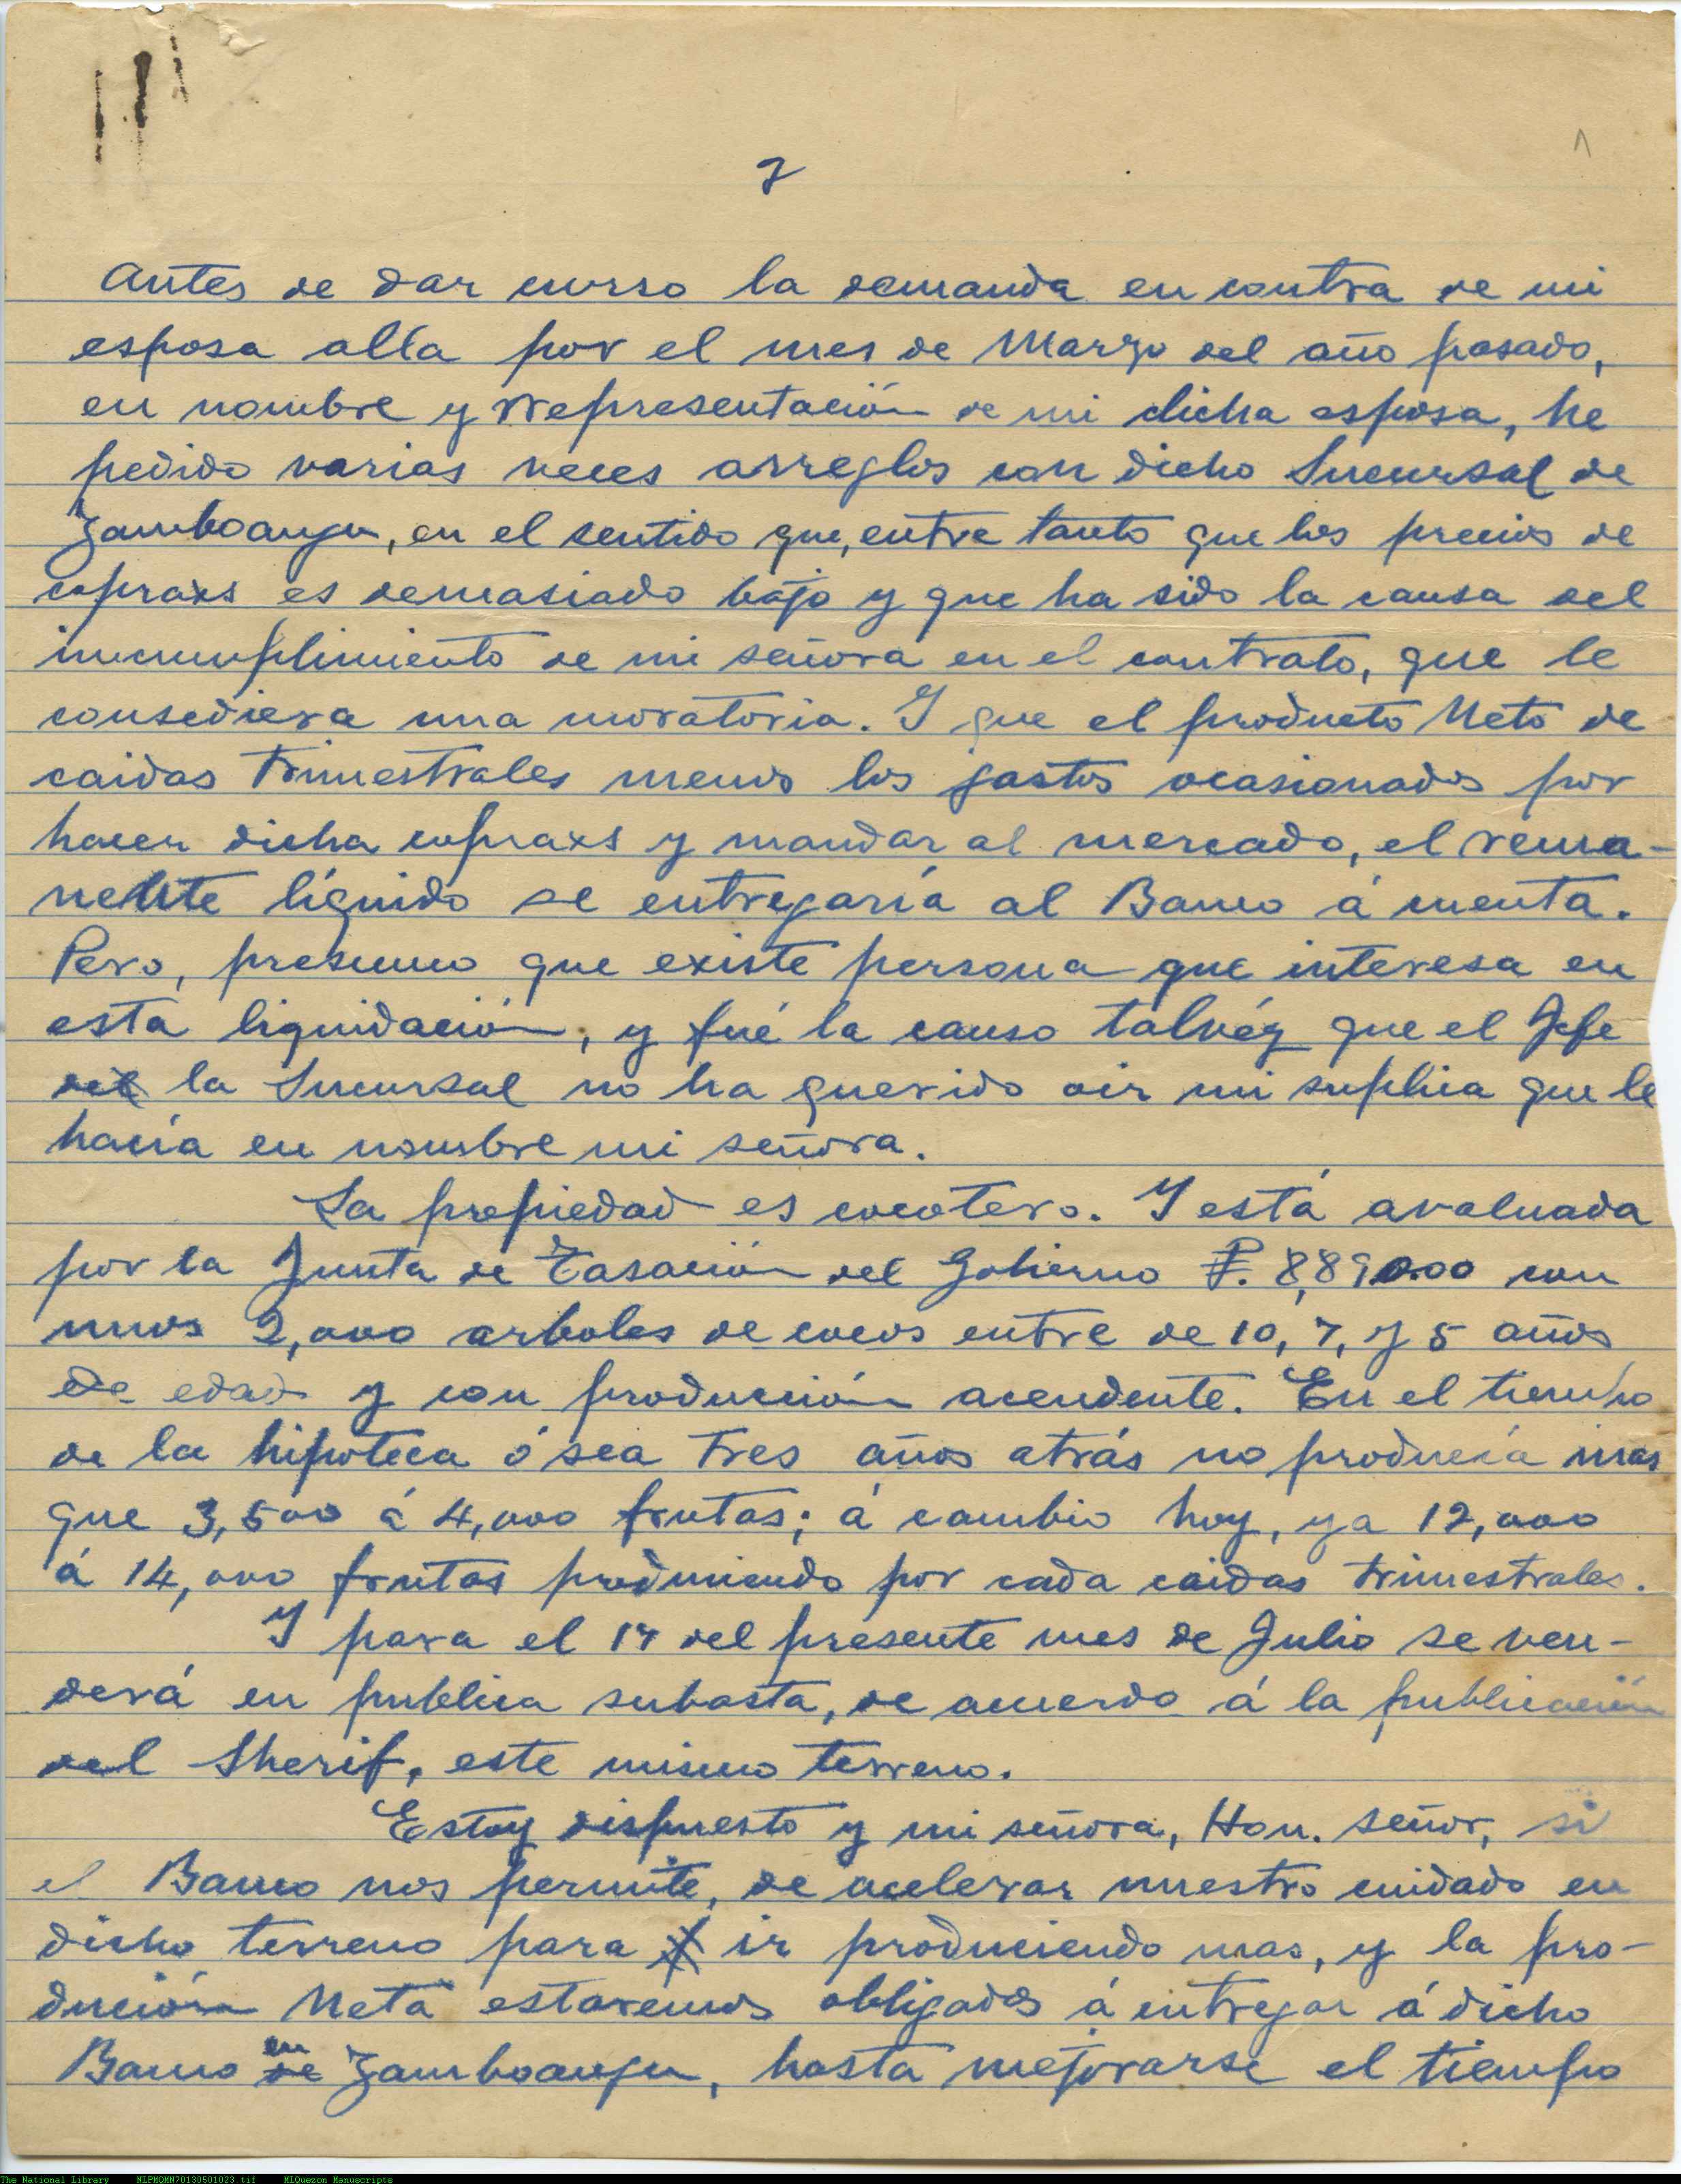 2
Antes de dar curso la demanda en contra de mi
esposa alla por el mes de Marzo del año pasado,
en nombre y representación de mi dicha esposa, he
pedido varias veces arreglos con dicho Sucursal de
Zamboanga, en el sentido que, entre tanto que los precios de
copraxs es demasiado bajo y que ha sido la causa del
incumplimiento de mi señora en el contrato, que le
consediera una moratoria. Y que el producto Neto de
caidas trimestrales menos los gastos ocasionados por
hacer dicha copraxs y mandar al mercado, el rema-
nente líquido se entregaría al Banco á cuenta.
Pero, presumo que existe persona que interesa en
esta liquidación, y fué la causo talvéz que el Jefe
de la Sucursal no ha querido oir mi suplica que le
hacía en nombre mi señora.
La propiedad es cocotero. Y está avaluada
por la Junta de Tasación del Gobierno ₱. 8,890.00 con
unos 2,000 arboles de cocos entre de 10, 7, y 5 años
de edad y con producción acendente. En el tiempo
de la hipoteca ó sea tres años atrás no producía mas
que 3,500 á 4,000 frutas; á cambio hoy, ya 12,000
á 14,000 frutas produciendo por cada caidas trimestrales.
Y para el 17 del presente mes de Julio se ven-
derá en publica subasta, de acuerdo á la publicación
del Sherif, este mismo terreno.
Estoy dispuesto y mi señora, Hon. señor, si
el Banco nos permite, de acelerar nuestro cuidado en
dicho terreno para ir produciendo mas, y la pro-
ducción Neta estaremos obligados á entregar á dicho
Banco en Zamboanga, hasta mejorarse el tiempo
The National Library NLPMQMN70130501023.tif MLQuezon Manuscripts